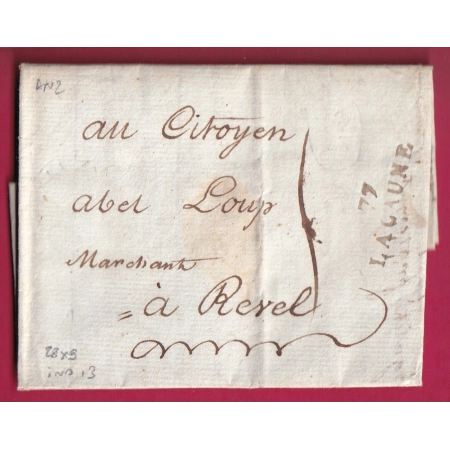 AN2
au Citoyen
abel Loup
Marchant
= à Revel
77
LACAUNE
28x9
ind 13